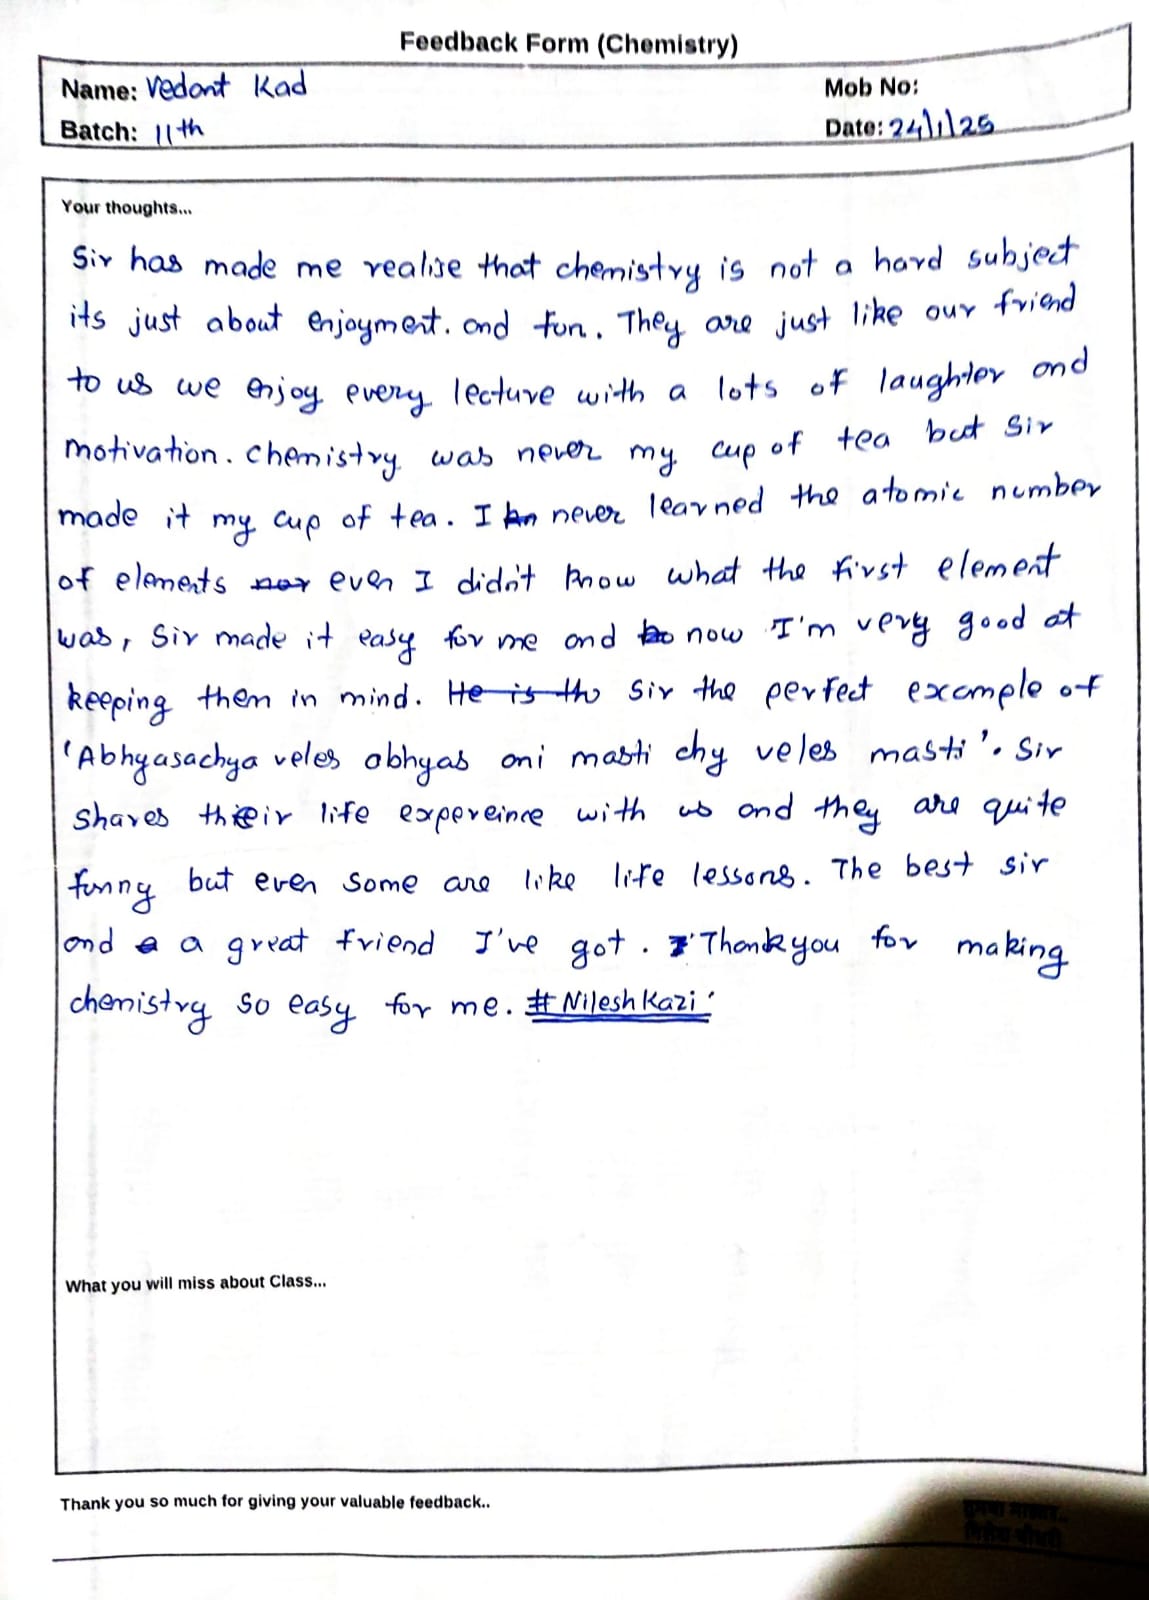 Feedback Form (Chemistry)
Name: Vedant Kad
Mob No:
Batch: 11th
Date: 24/1/25
Your thoughts...
Sir has made me realise that chemistry is not a hard subject
its just about enjoyment. and fun. They are just like our friend
to us we enjoy every lecture with a lots of laughter and
motivation. Chemistry was never my cup of tea but Sir
made it my cup of tea. I never learned the atomic number
of elements even I didn't know what the first element
was, Sir made it easy for me and now I'm very good at
keeping them in mind. He is the Sir the perfect example of
'Abhyasachya veles abhyas ani masti chy veles masti'. Sir
shares their life expereince with us and they are quite
funny but even some are like life lessons. The best sir
and a great friend I've got. Thank you for making
chemistry so easy for me. #Nilesh Kazi'
What you will miss about Class...
Thank you so much for giving your valuable feedback..